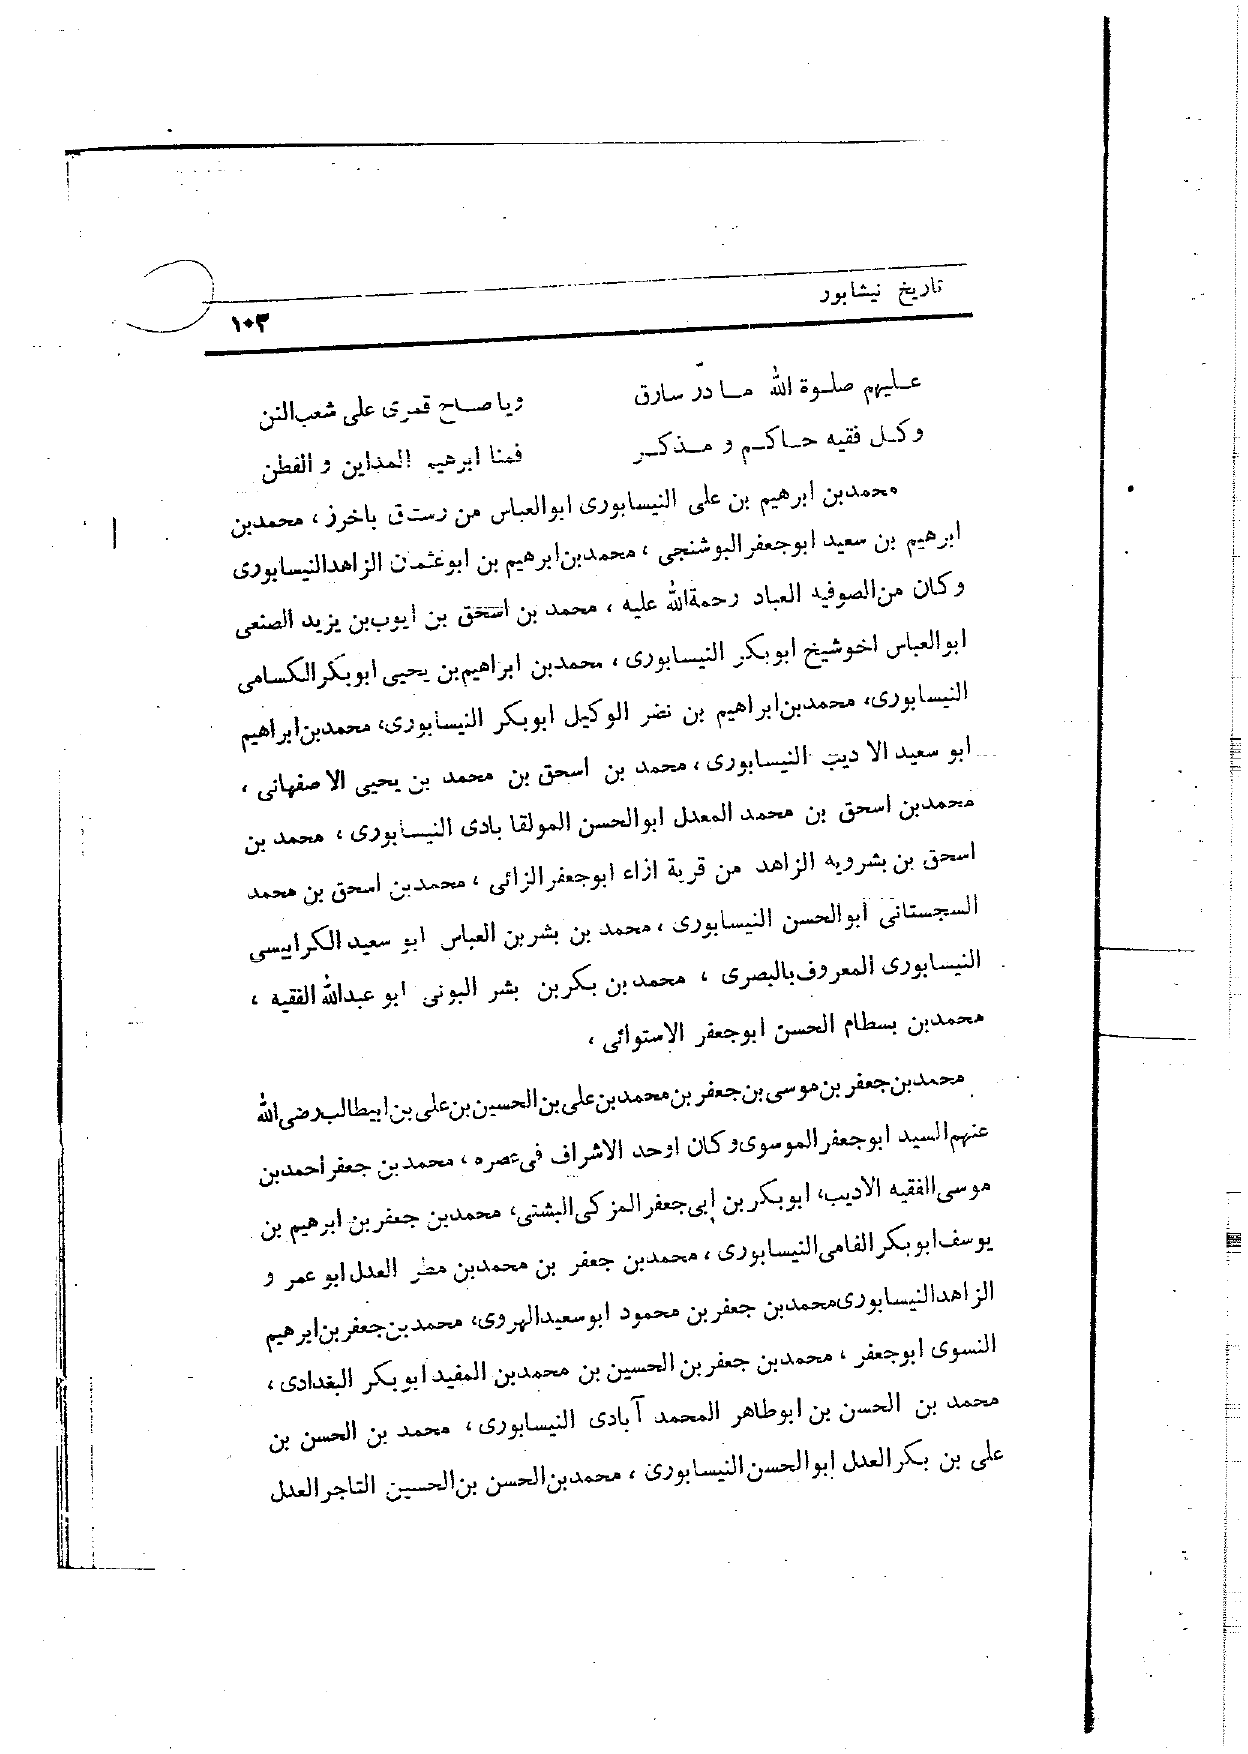 تاریخ نیشابور
۱۰۳
علیهم صلوة الله ما درّ سارق
ویا صاح قمری علی شعب‌النن
وکل فقیه حاکم و مذکر
فمنا ابرهیم المداین و الفطن
محمدبن ابرهیم بن علی النیسابوری ابوالعباس من رستق باخرز ، محمدبن
ابرهیم بن سعید ابوجعفرالبوشنجی ، محمدبن‌ابرهیم بن ابوعثمان الزاهدالنیسابوری
وکان من‌الصوفیه العباد رحمةالله علیه ، محمد بن اسحق بن ایوب‌بن یزید الصنعی
ابوالعباس اخوشیخ ابوبکر النیسابوری ، محمدبن ابراهیم‌بن یحیی ابوبکرالکسامی
النیسابوری، محمدبن‌ابراهیم بن نضر الوکیل ابوبکر النیسابوری، محمدبن‌ابراهیم
ابو سعید الادیب النیسابوری ، محمد بن اسحق بن محمد بن یحیی الاصفهانی ،
محمدبن اسحق بن محمد المعدل ابوالحسن المولقا بادی النیسابوری ، محمد بن
اسحق بن بشرویه الزاهد من قریة ازاء ابوجعفرالزائی ، محمدبن اسحق بن محمد
السجستانی ابوالحسن النیسابوری ، محمد بن بشربن العباس ابو سعید الکرابیسی
النیسابوری المعروف‌بالبصری ، محمدبن بکربن بشر البونی ابو عبدالله الفقیه ،
محمدبن بسطام الحسن ابوجعفر الاستوائی ،
محمدبن‌جعفر بن‌موسی‌بن‌جعفر بن‌محمدبن‌علی‌بن‌الحسین‌بن‌علی‌بن‌ابیطالب‌رضی‌الله
عنهم‌السید ابوجعفرالموسوی‌وکان اوحد الاشراف فی‌عصره ، محمدبن جعفراحمدبن
موسی‌الفقیه الادیب، ابوبکربن ابی‌جعفرالمزکی‌البشتی، محمدبن جعفربن ابرهیم بن
یوسف‌ابوبکرالفامی‌النیسابوری ، محمدبن جعفر بن محمدبن مطر العدل‌ابو عمر و
الزاهدالنیسابوری‌محمدبن جعفربن محمود ابوسعیدالهروی، محمدبن‌جعفربن‌ابرهیم
النسوی ابوجعفر ، محمدبن جعفربن الحسین بن محمدبن المفید ابوبکر البغدادی ،
محمد بن الحسن بن ابوطاهر المحمد آبادی النیسابوری ، محمد بن الحسن بن
علی بن بکرالعدل ابوالحسن‌النیسابوری ، محمدبن‌الحسن بن‌الحسین التاجرالعدل